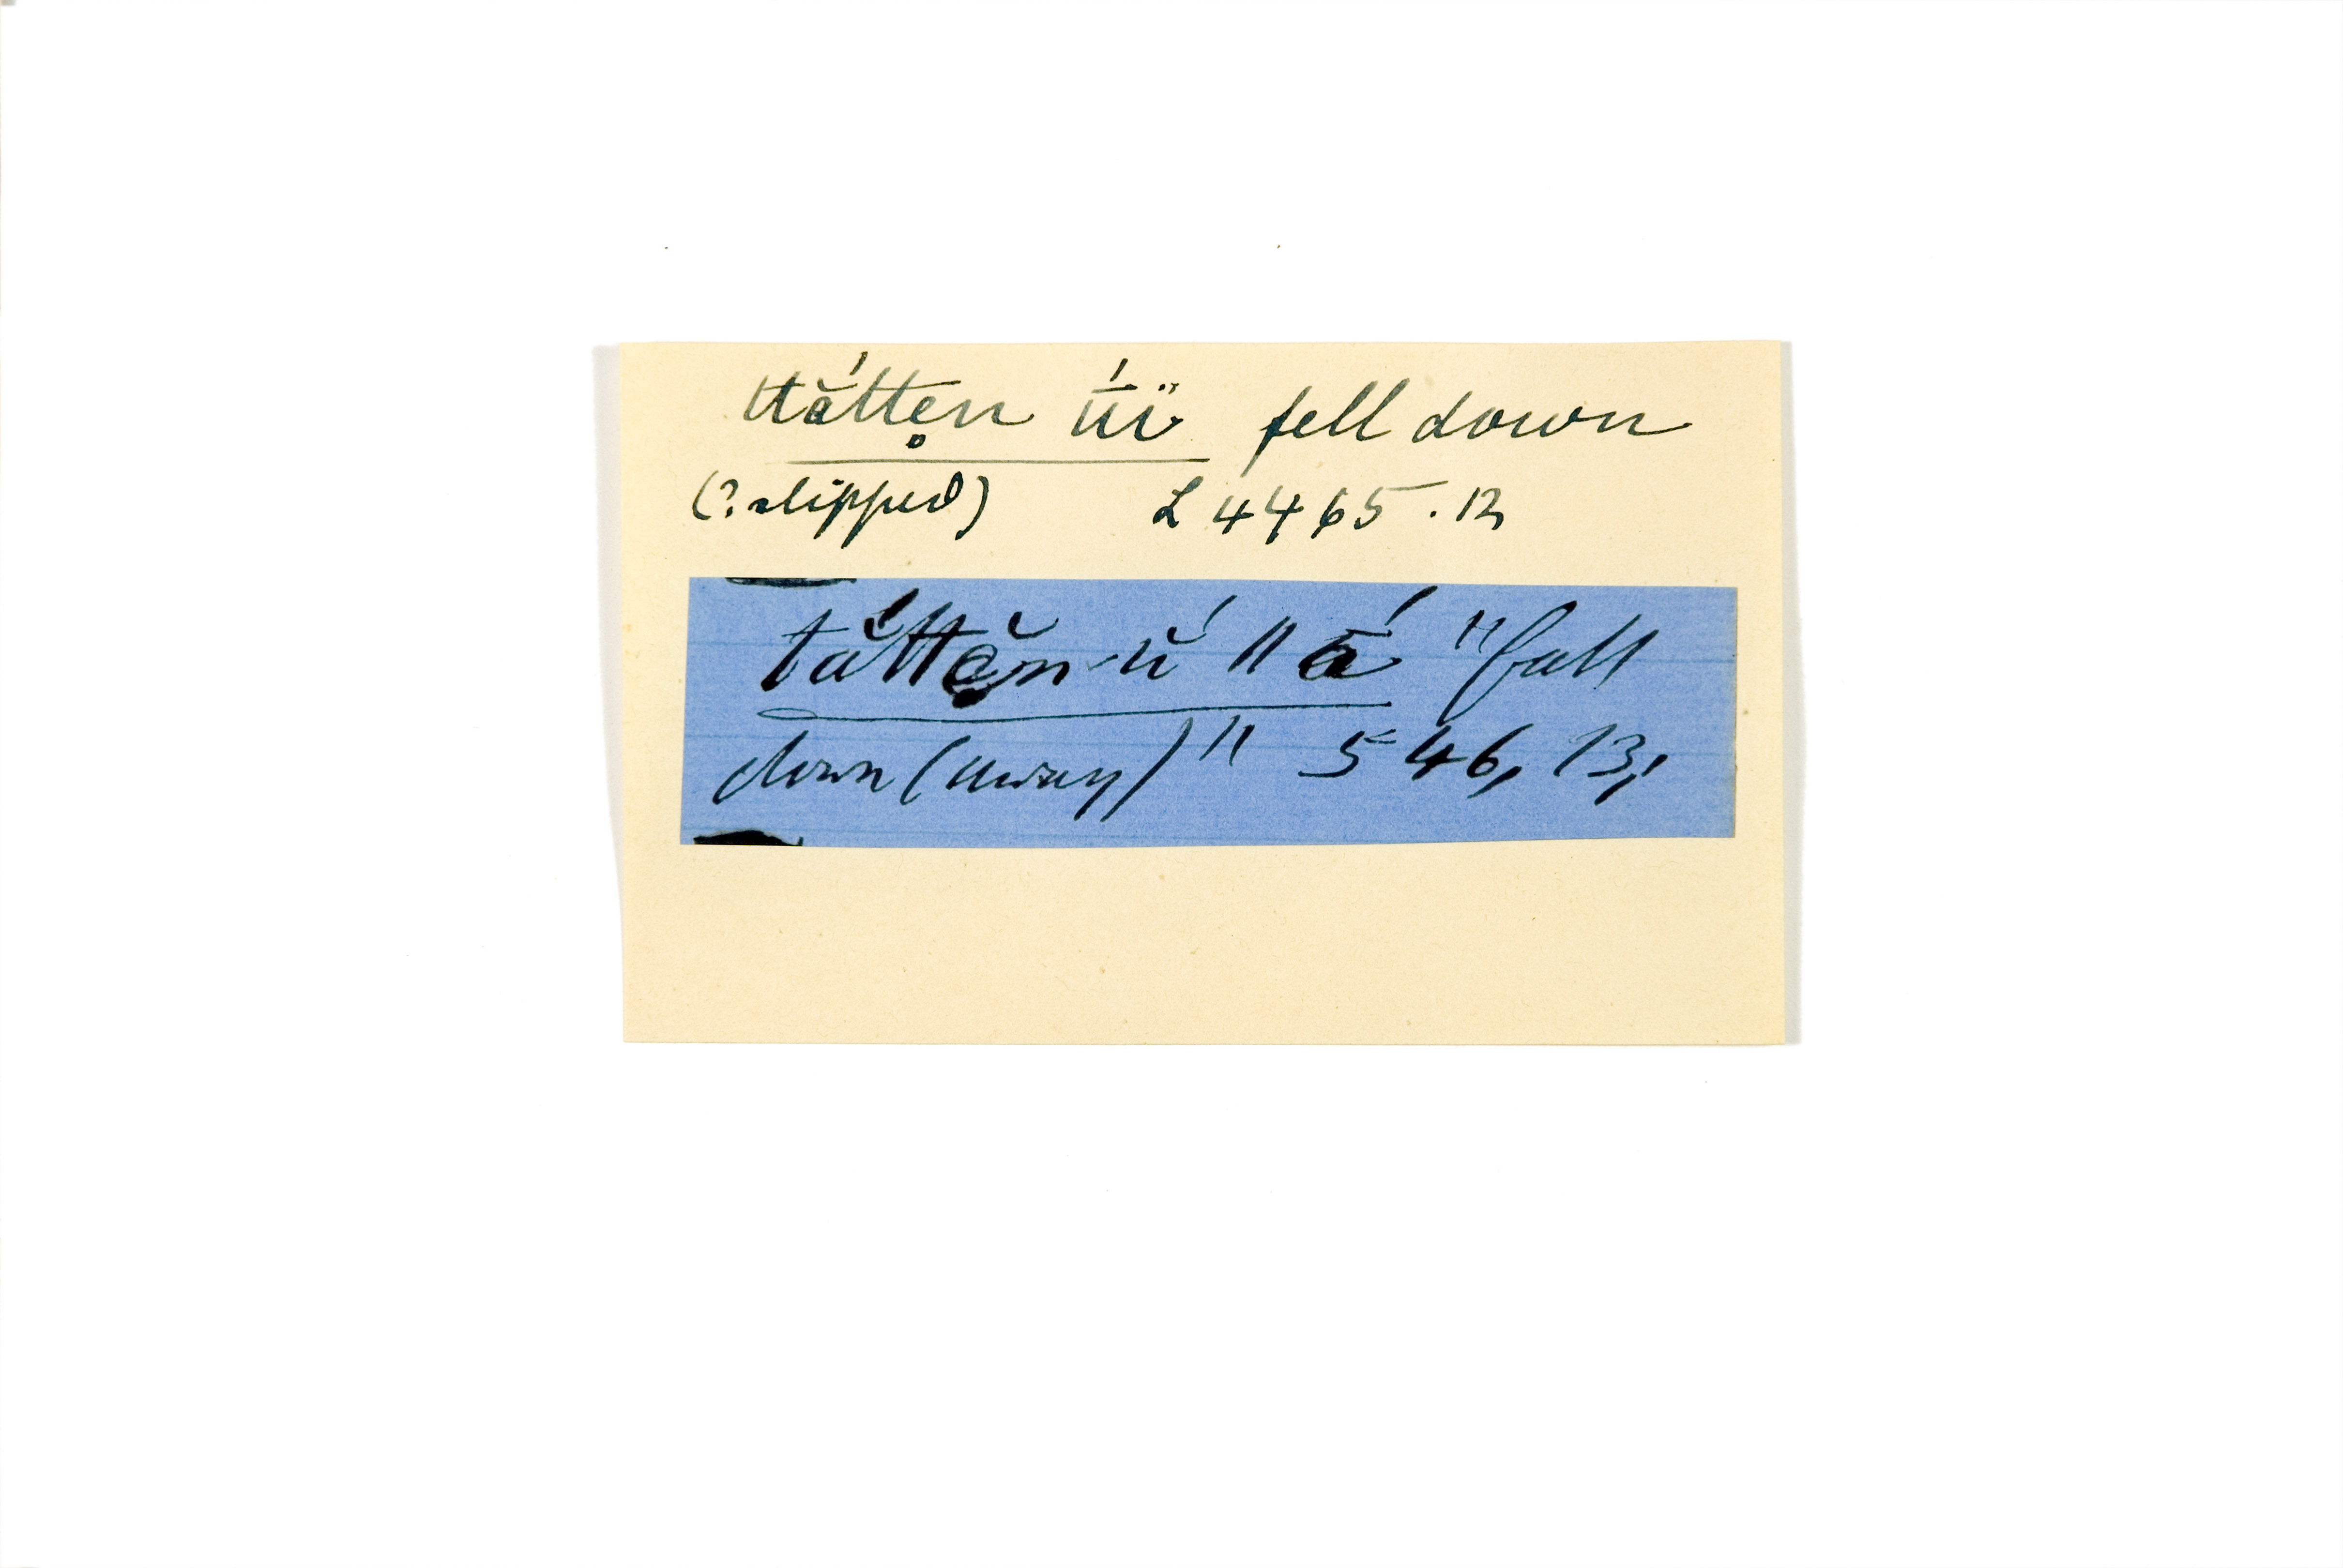 ttắttẹn ū́ï fell down
(? slipped) L 4465 . 12
tắttẹ̆n-ŭ́ ǁā́ "fall
down (away)" 546, 13,'